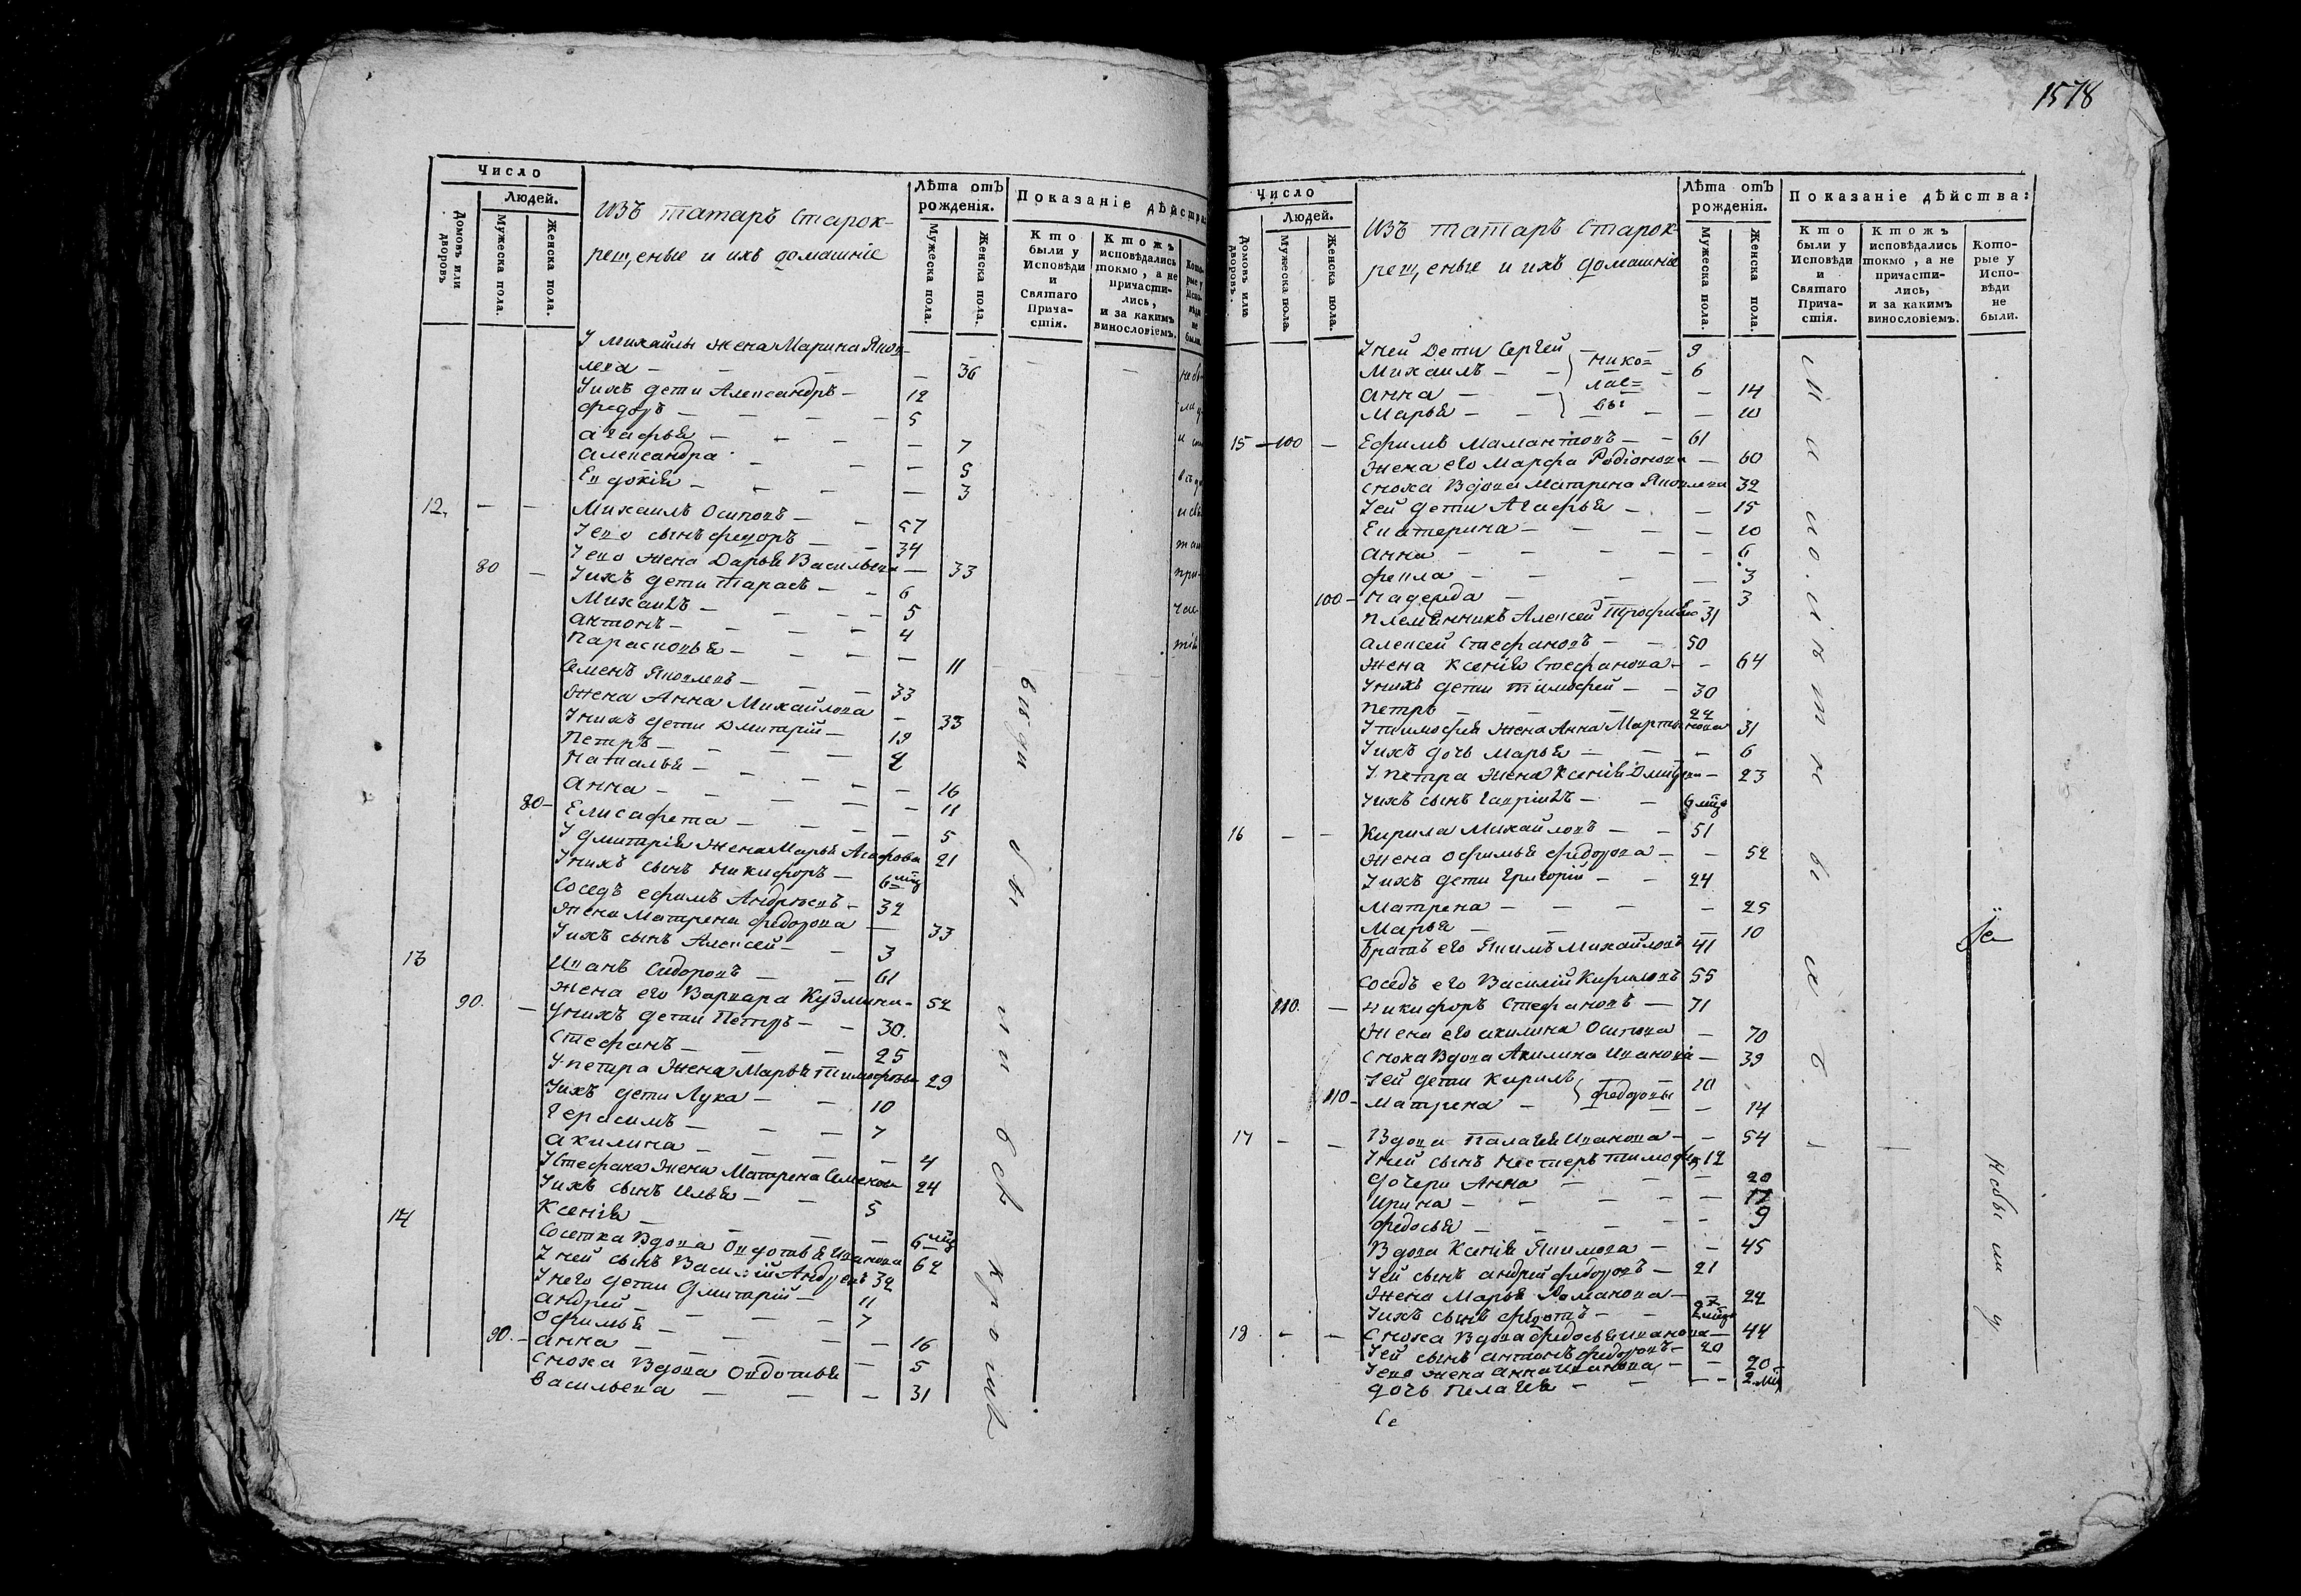 Число
Людей.
Домовъ или дворовъ
Мужеска пола.
Женска пола.
Изъ татаръ старок-
рещеные и ихъ домашніе
Лѣта отъ рожденія.
Мужеска пола.
Женска пола.
Показаніе дѣйства:
Кто были у Исповѣди и Святаго Прича-стія.
Ктожъ исповѣдались токмо, а не причасти-лись, и за какимъ винословіемъ.
Кото-рые у Испо-вѣди не были.
У михаилы жена Марина Яков-
лева — 36
У ихъ дети Александръ — 12
Федоръ — 5
Агафья — 7
Александра — 5
Евдокія — 3
12. Михаилъ Осиповъ — 57
У ево сынъ Федоръ — 34
У ево жена Дарья Васильева — 33
80 — У ихъ дети Тарасъ — 6
Михаилъ — 5
Антонъ — 4
Парасковья — 11
Семенъ Яковлевъ — 33
Жена Анна Михайлова — 33
У нихъ дети Дмитрій — 19
Петръ —
Наталья — 16
Анна — 11
80 — Елисафета — 5
У Дмитрія жена Марья Агафова 21
У нихъ сынъ Никифоръ — 6 мц
Соседъ Ефимъ Андреевъ — 32
Жена Матрена Федорова — 33
У ихъ сынъ Алексей — 3
13 Иванъ Сидоровъ — 61
Жена его Варвара Кузмина — 52
90. — У нихъ дети Петръ — 30.
Стефанъ — 25
У петра жена Марья Тимофеева 29
У ихъ дети Лука — 10
Герасимъ — 7
Акилина — 4
У Стефана жена Матрена Семенова 24
У ихъ сынъ Илья — 5
Ксенія — 6 мц
14 Сосетка Вдова Овдотья Иванова 62
У ней сынъ Василій Андреевъ 32
У него дети Дмитрій — 11
Андрей — 7
Офимья — 16
90. — Анна — 5
Сноха Вдова Овдотья
Васильева — 31
1578
Число
Людей.
Домовъ или дворовъ.
Мужеска пола.
Женска пола.
Изъ татаръ старок-
рещеные и ихъ домашніе
Лѣта отъ рожденія.
Мужеска пола.
Женска пола.
Показаніе дѣйства:
Кто были у Исповѣди и Святаго Прича-стія.
Ктожъ исповѣдались токмо, а не причасти-лись, и за какимъ винословіемъ.
Кото-рые у Испо-вѣди не были.
У ней дети Сергей — 9
Михаилъ — нико= 6
Анна — лае= 14
Марья — вы 10
15 — 100 — Ефимъ Мамантовъ — 61
Жена его Марфа Родіонова — 60
Сноха Вдова Матрена Яковлева 32
У ей дети Агафья — 15
Екатерина — 10
Анна — 6
Фекла — 3
100 — Надежда — 3
Племянникъ Алексей Трофимо 31
Алексей Стефановъ — 50
Жена Ксенія Стефанова — 64
У нихъ дети Тимофей — 30
Петръ — 22
У тимофея жена Анна Мартынова 31
У ихъ дочь Марья — 6
У петра жена Ксенія — 23
У ихъ сынъ Гавріилъ — 6 мцо
16 — Кирила Михайловъ — 51
Жена Офимья Федорова — 52
У ихъ дети Григорій — 24
Матрена — 25
Марья — 10
Братъ его Якимъ Михайловъ 41
Соседъ его Василій Кириловъ 55
110. — Никифоръ Стефановъ — 71
Жена его акилина Осипова — 70
Сноха Вдова Акилина Иванова — 39
У ей дети Кирилъ — Федоровы 10
110 — Матрена — 14
17 — Вдова Палагея Иванова — 54
У ней сынъ Нестеръ Тимофе 12
дочери Анна — 20
Ирина — 17
Федосья — 9
Вдова Ксенія Якимова — 45
У ей сынъ Андрей Федоровъ — 21
Жена Марья Романова — 22
У ихъ сынъ Федотъ —
18. — Сноха Вдова Федосья Иванова — 44
У ей сынъ Антонъ Федоровъ — 20
У ево жена Анна Иванова — 20
дочь Пелагея — 2 мц
Се